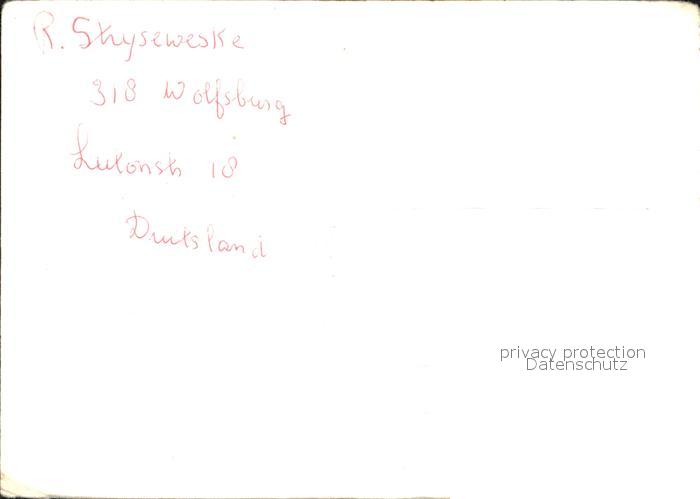 R. Stryseweske
318 Wolfsburg
Lutonstr 18
Duitsland
privacy protection
Datenschutz